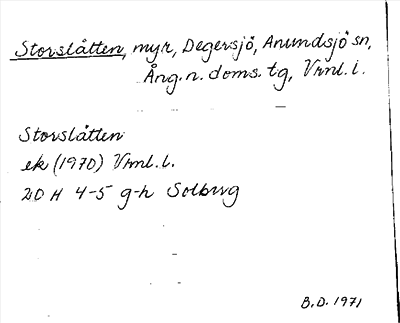 Storslåtten, myr, Degersjö, Anundsjö sn,
Ång. n. doms. tg, Vrml. l.
Storslåtten
ek (1970) Vrml. l.
20 H 4-5 g-h Solberg
B.D. 1971